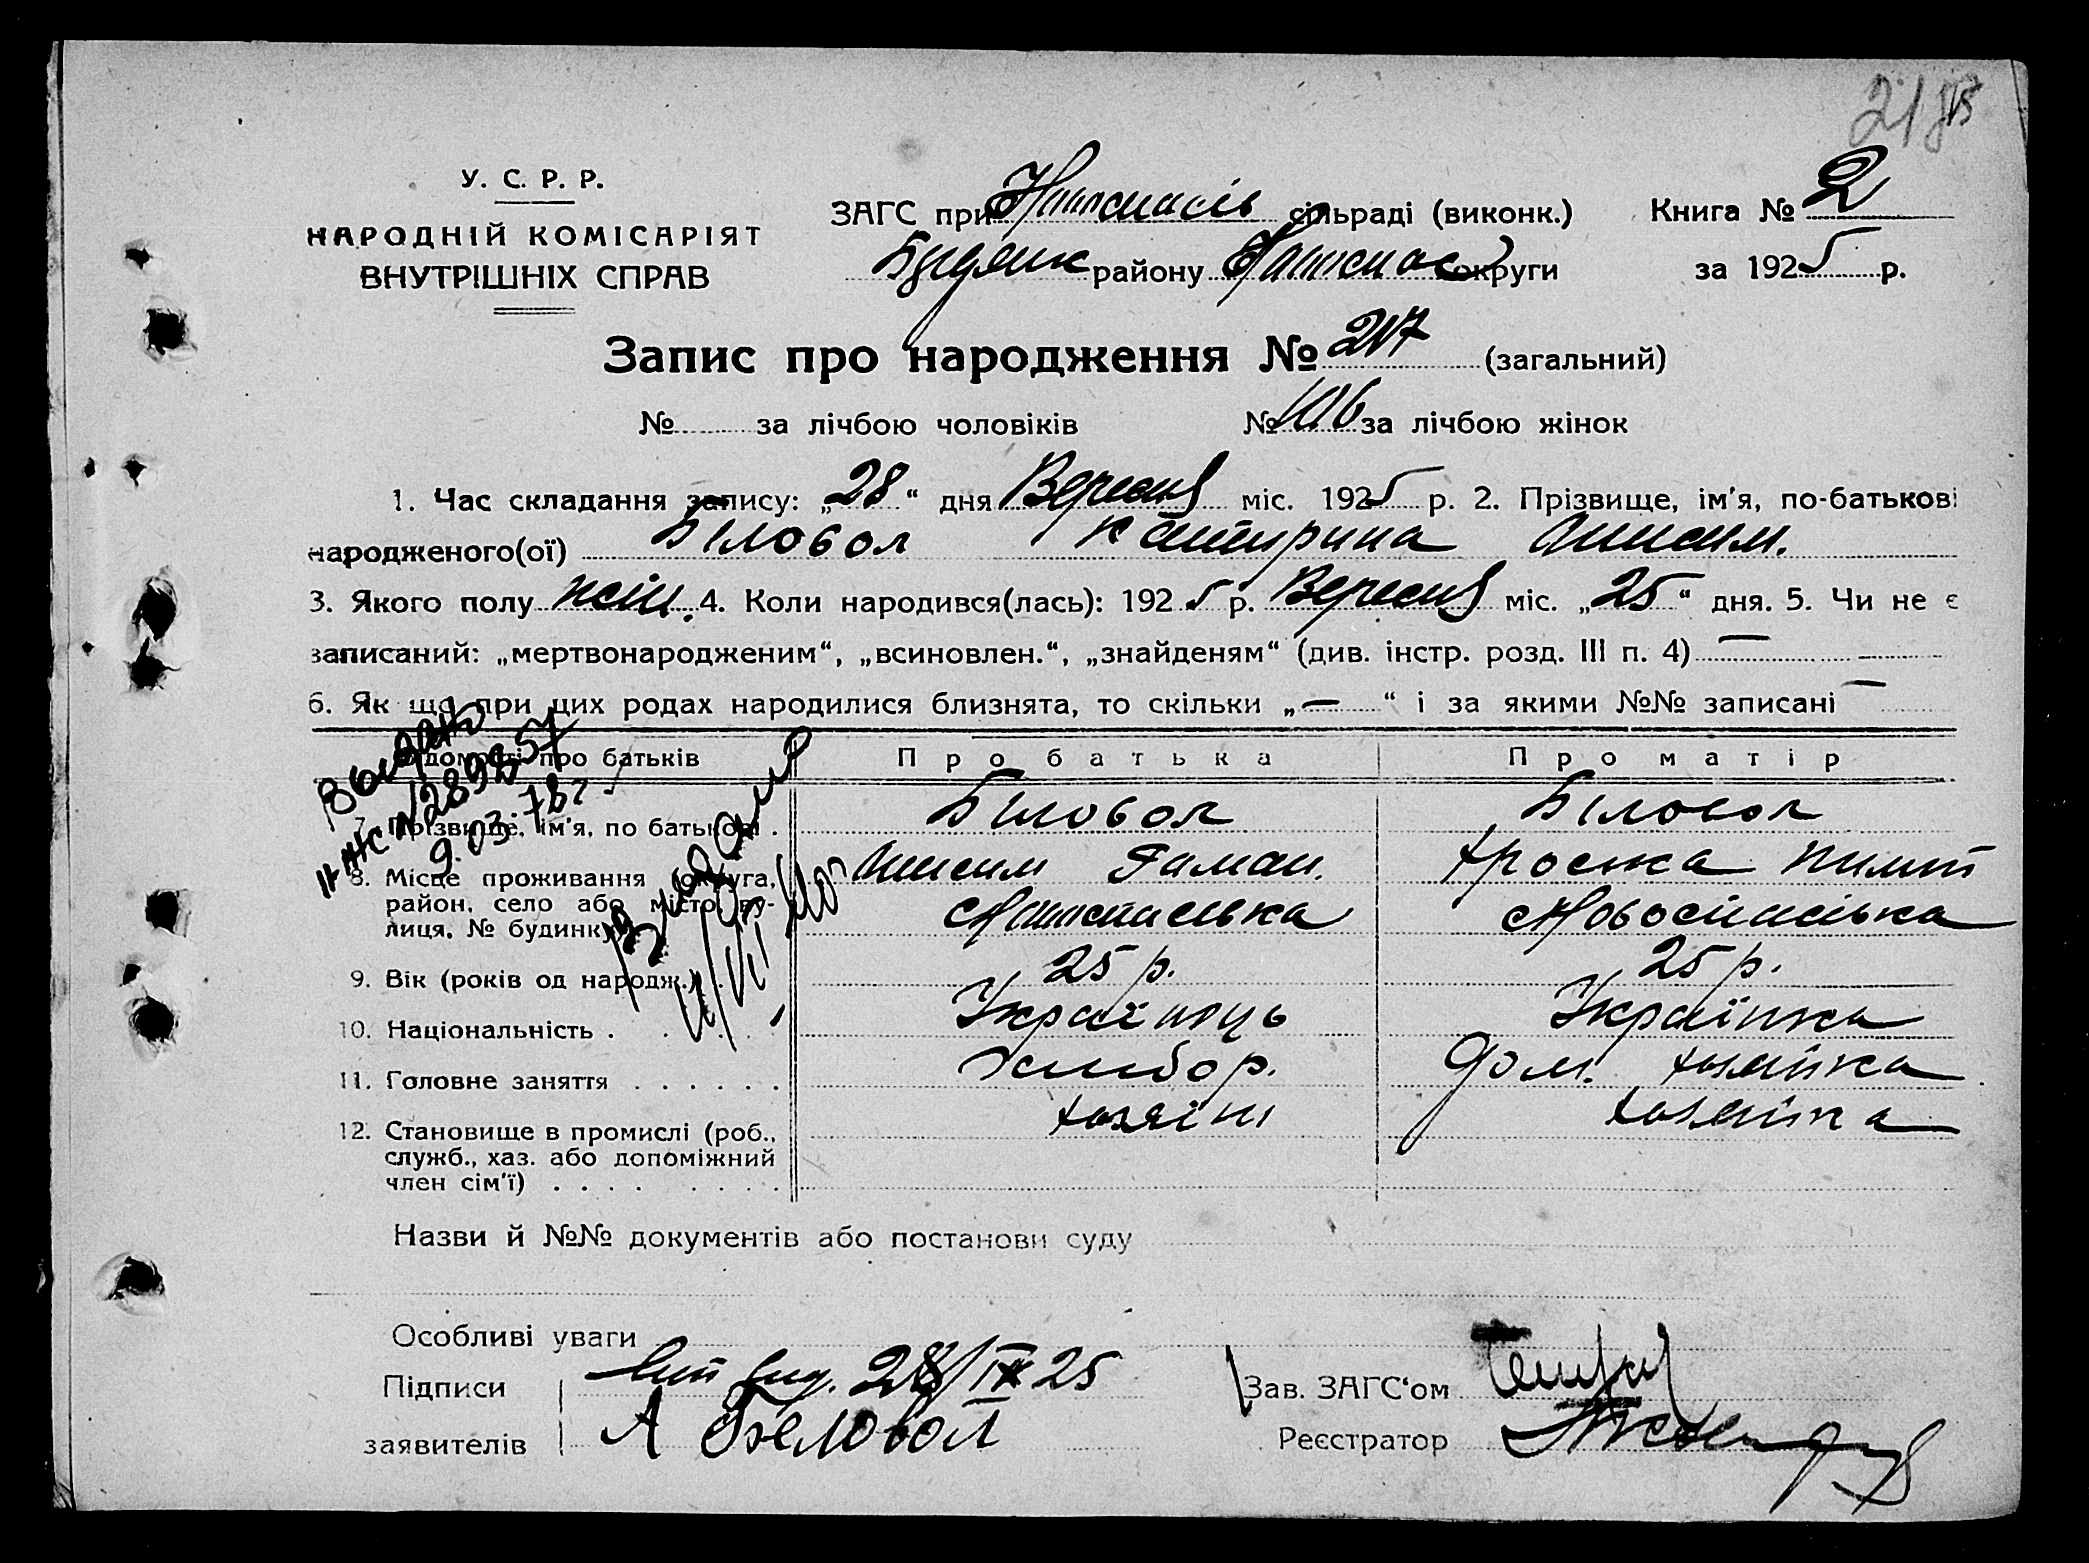 У. С. Р. Р.
НАРОДНІЙ КОМІСАРІЯТ
ВНУТРІШНІХ СПРАВ
ЗАГС при сільраді (виконк.)
району округи
Книга № 2
за 1925 р.
Запис про народження № 217 (загальний)
№ за лічбою чоловіків № 106 за лічбою жінок
1. Час складання запису: „28“ дня Вересня міс. 1925 р. 2. Прізвище, ім'я, по-батькові
народженого(ої) Біловол Катирина Анисим.
3. Якого полу жін. 4. Коли народився(лась): 1925 р. Вересня міс. „25“ дня. 5. Чи не є
записаний: „мертвонародженим“, „всиновлен.“, „знайденям“ (див. інстр. розд. III п. 4) —
6. Як що при цих родах народилися близнята, то скільки „—“ і за якими №№ записані —
Відомості про батьків Про батька Про матір
7. Прізвище, ім'я, по батькові . Біловол Біловол
8. Місце проживання (округа, Анисим Роман.
район, село або місто, ву-
лиця, № будинк.)
9. Вік (років од народж.) . 25 р. 25 р.
10. Національність . . . . . Українець Українка
11. Головне заняття . . . . . . Хлибор. Дом. хозяйка
12. Становище в промислі (роб., хозяін хозяйка
служб., хаз. або допоміжний
член сім'ї) . . . . . . . .
Выдано
9.03.78г
Назви й №№ документів або постанови суду
Особливі уваги
Підписи 28/IX 25
заявителів А Беловол
Зав. ЗАГС'ом
Реєстратор